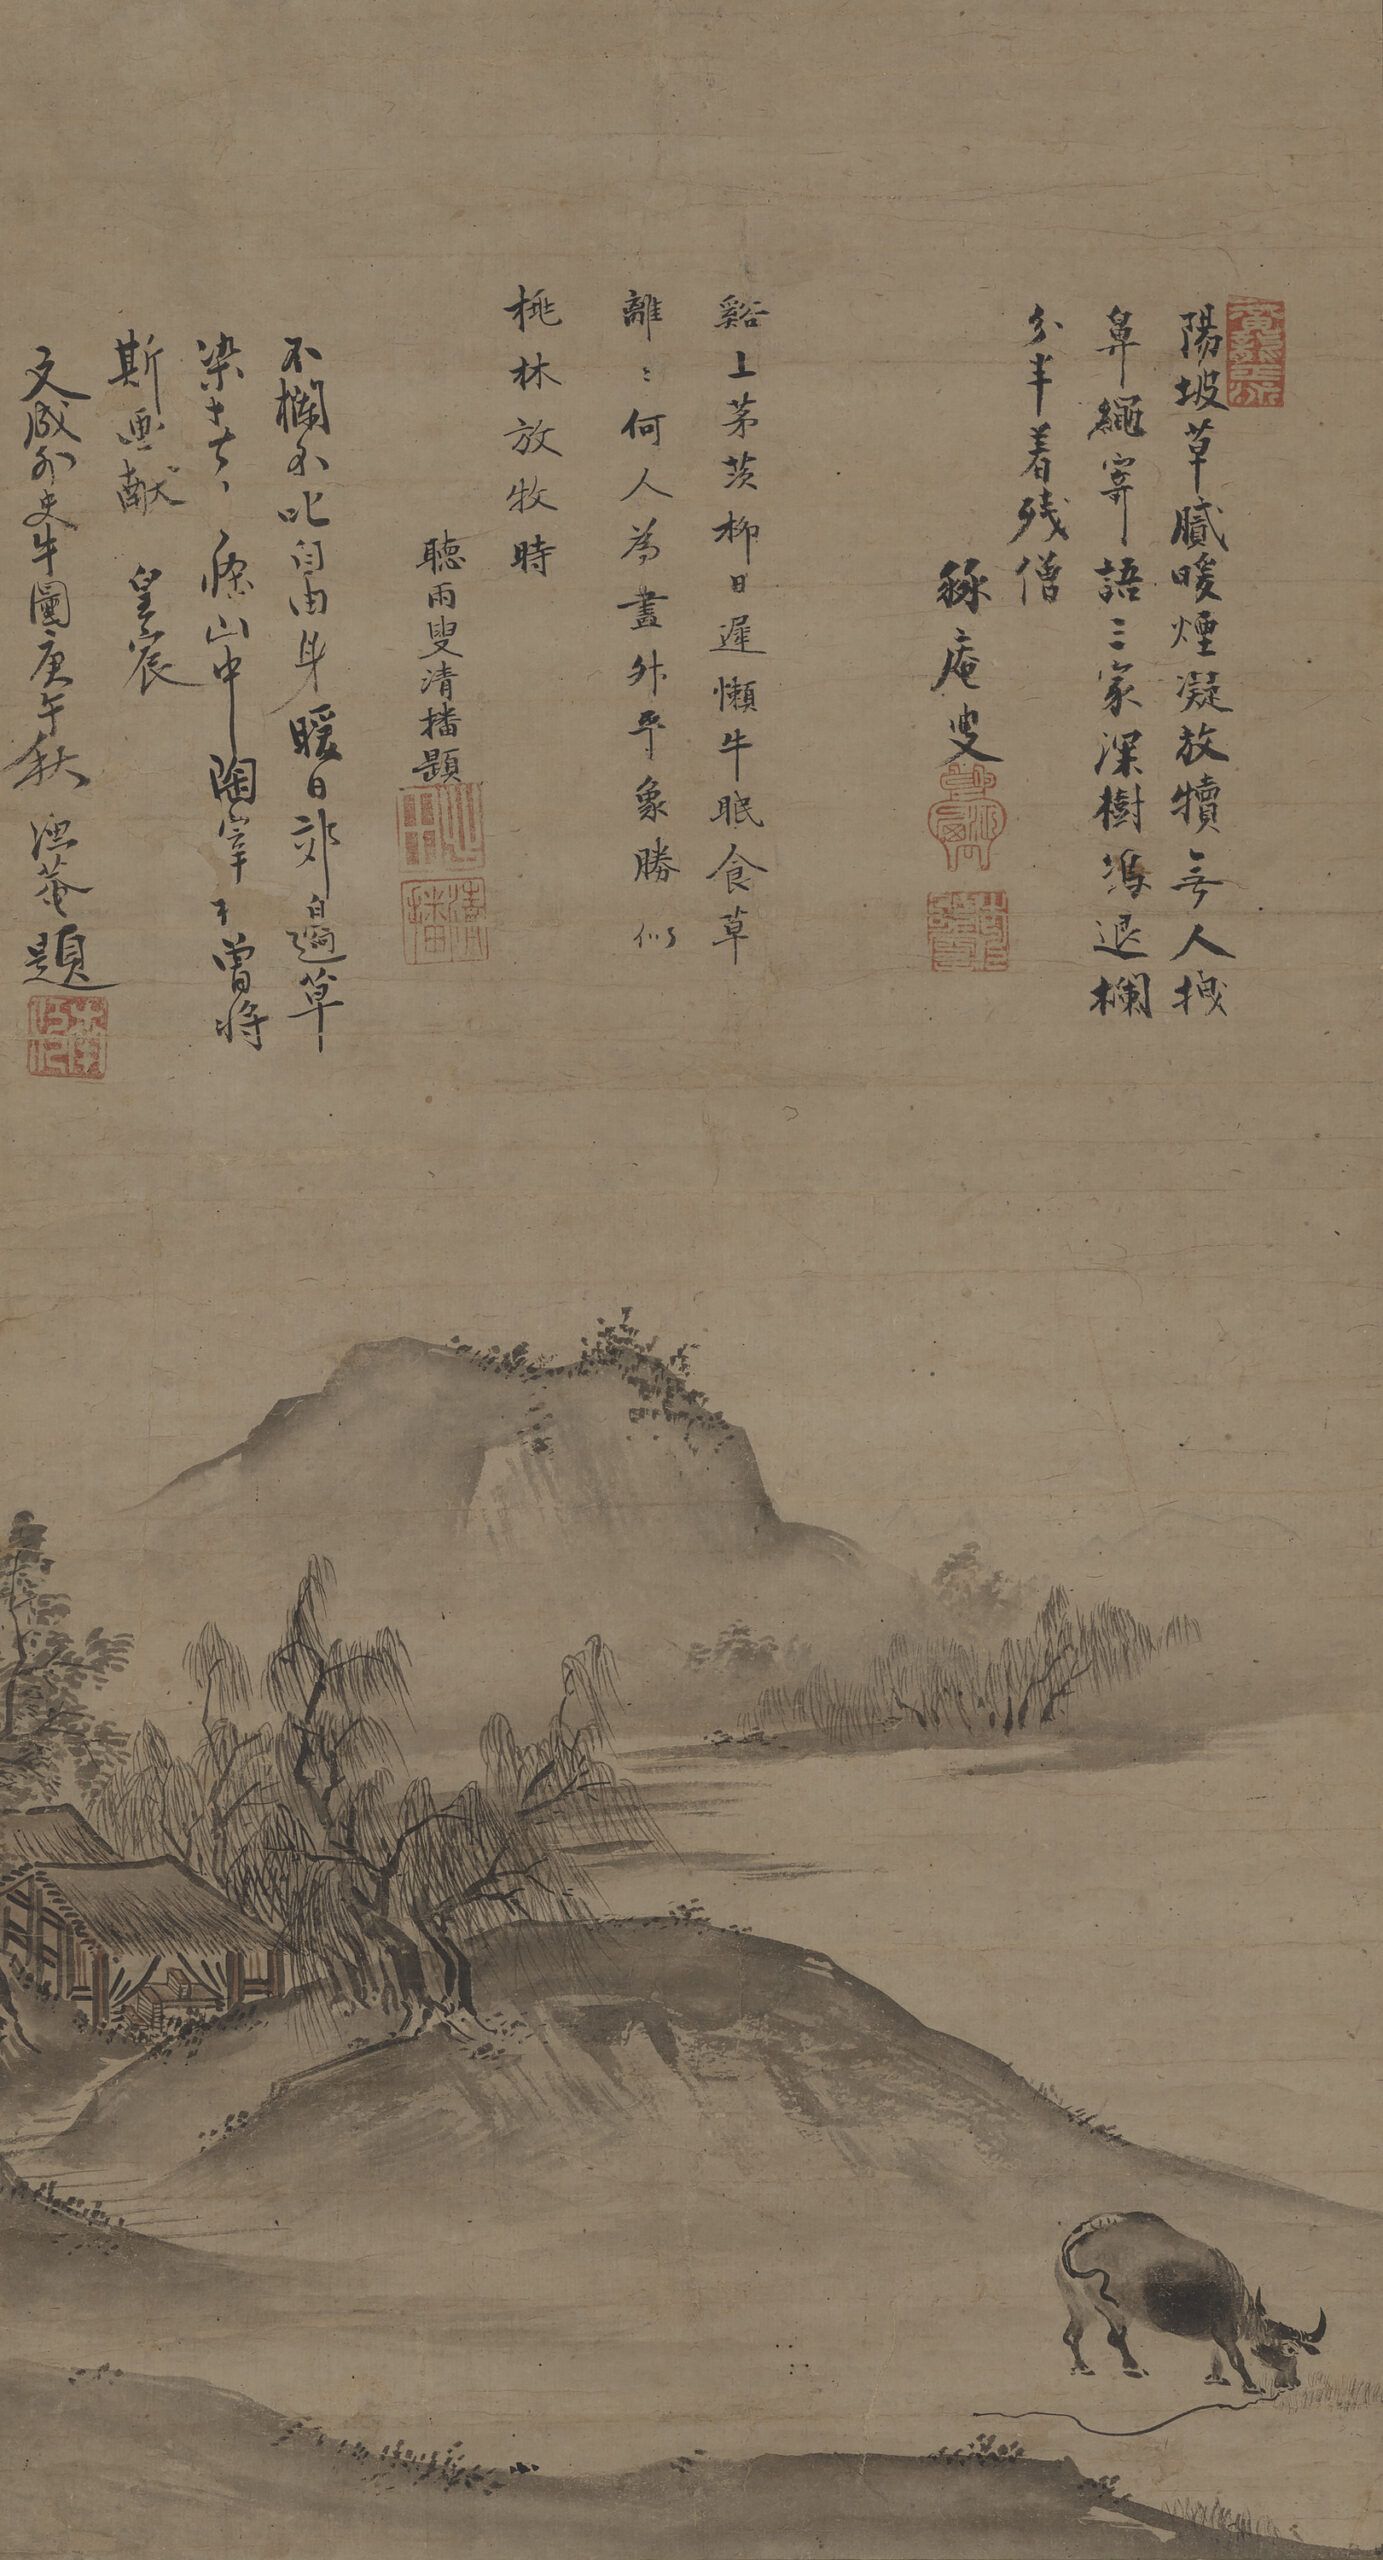 陽坡草膩暖煙凝放犢無人拽
鼻繩寄語三家深樹塢退欄
分半着残僧
庵叟
谿上茅茨柳日遲懶牛眠食草
離〻何人為畫外平象勝似
桃林放牧時
聴雨叟清播題
不欄不叱自由身暖日郊邊草
染
山中陶宰不曾将
斯画献 皇宸
文成外史牛圖庚午秋 題
清播